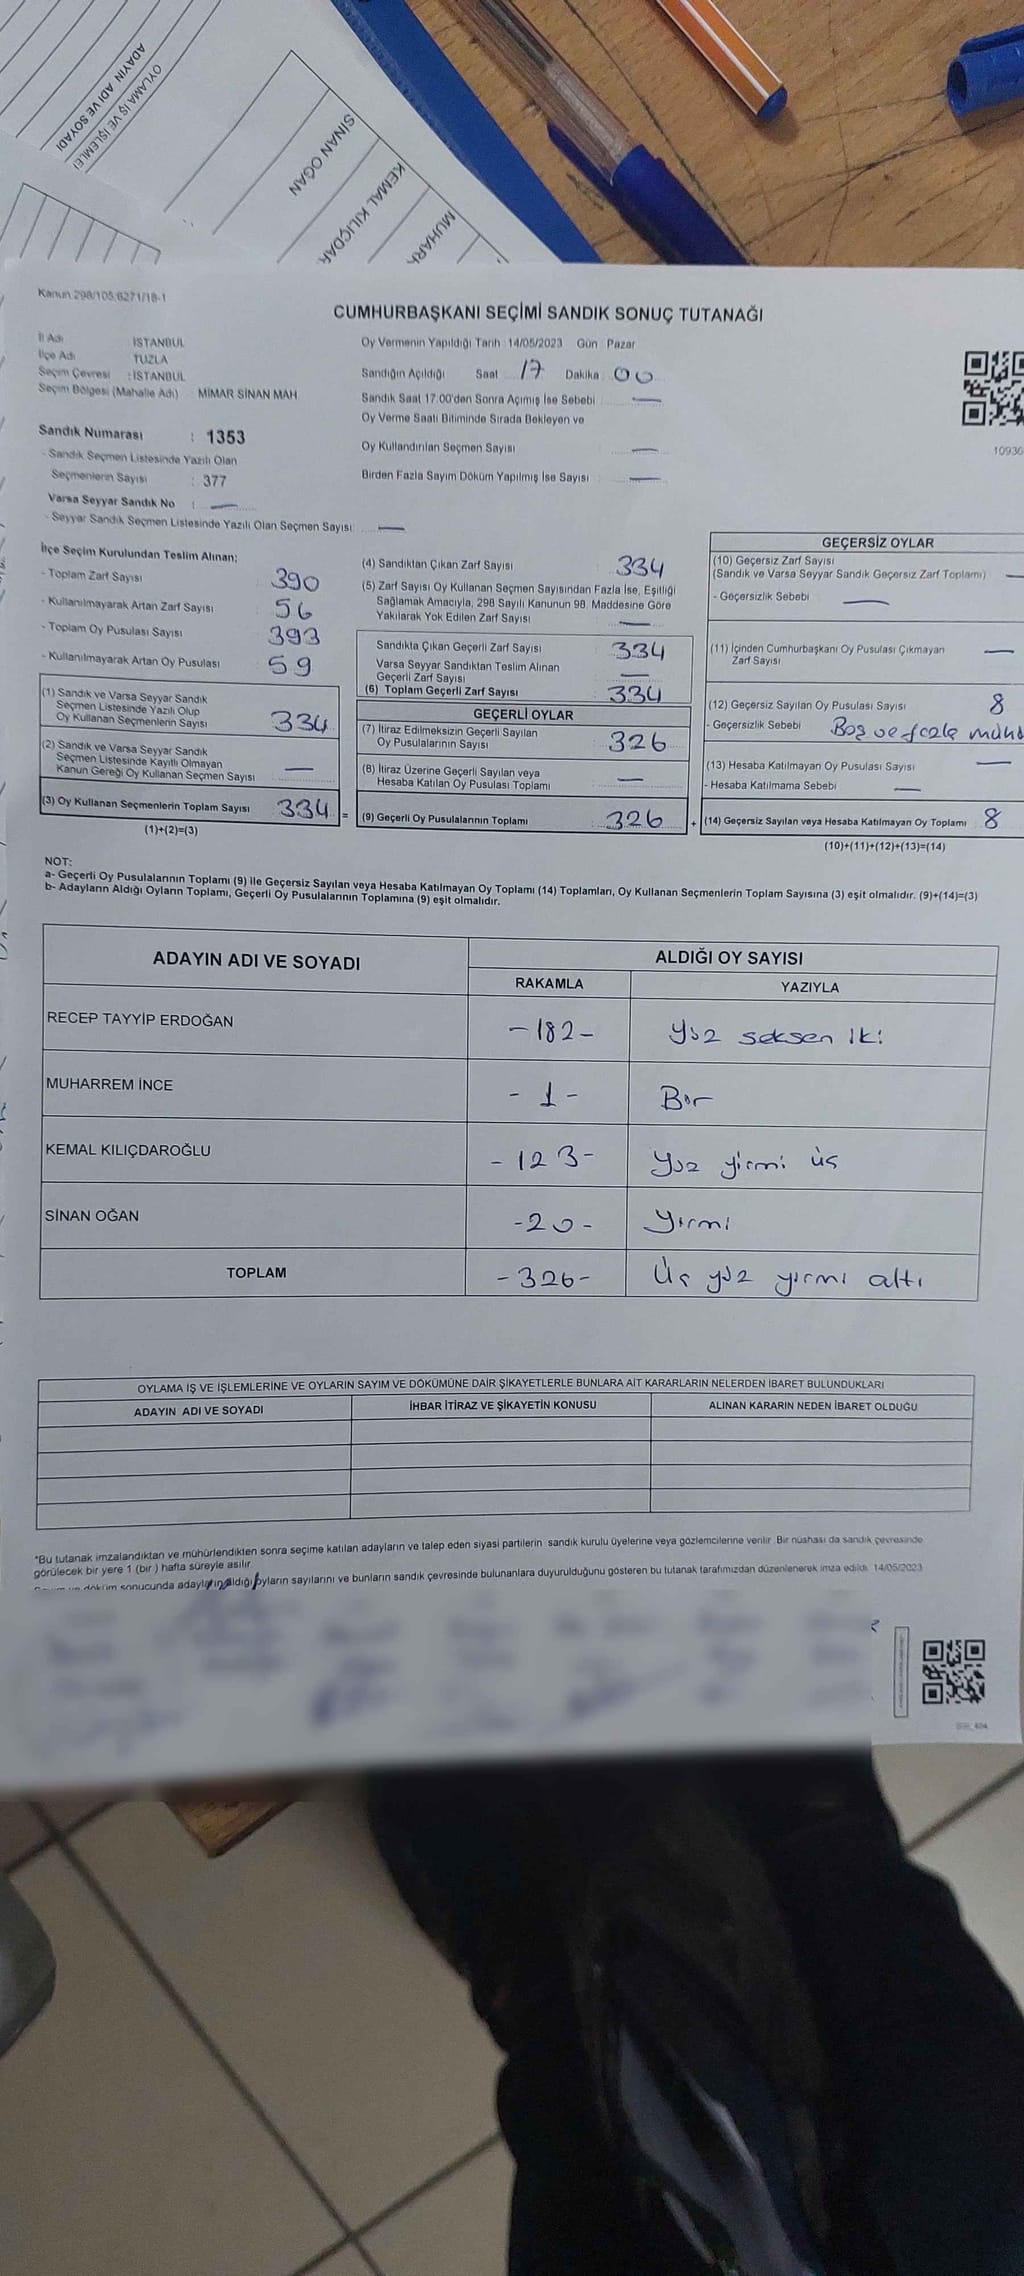 OYLAMA İŞ VE İŞLEMLEI
ADAYIN ADI VE SOYADI
SİNAN OĞAN
KEMAL KILIÇDAR
MUHARR
Kanun 298/105,6271/18-1
CUMHURBAŞKANI SEÇİMİ SANDIK SONUÇ TUTANAĞI
İl Adı İSTANBUL
İlçe Adı TUZLA
Seçim Çevresi : İSTANBUL
Seçim Bölgesi (Mahalle Adı) MİMAR SİNAN MAH
Oy Vermenin Yapıldığı Tarih 14/05/2023 Gün Pazar
Sandığın Açıldığı Saat 17 Dakika 00
Sandık Saat 17:00'den Sonra Açımış İse Sebebi : —
Oy Verme Saati Bitiminde Sırada Bekleyen ve
Oy Kullandırılan Seçmen Sayısı : —
Birden Fazla Sayım Döküm Yapılmış İse Sayısı : —
10930
Sandık Numarası : 1353
- Sandık Seçmen Listesinde Yazılı Olan
Seçmenlerin Sayısı : 377
Varsa Seyyar Sandık No : —
- Seyyar Sandık Seçmen Listesinde Yazılı Olan Seçmen Sayısı: —
İlçe Seçim Kurulundan Teslim Alınan;
- Toplam Zarf Sayısı 390
- Kullanılmayarak Artan Zarf Sayısı 56
- Toplam Oy Pusulası Sayısı 393
- Kullanılmayarak Artan Oy Pusulası 59
(1) Sandık ve Varsa Seyyar Sandık
Seçmen Listesinde Yazılı Olup
Oy Kullanan Seçmenlerin Sayısı 334
(2) Sandık ve Varsa Seyyar Sandık
Seçmen Listesinde Kayıtlı Olmayan
Kanun Gereği Oy Kullanan Seçmen Sayısı —
(3) Oy Kullanan Seçmenlerin Toplam Sayısı 334 =
(1)+(2)=(3)
(4) Sandıktan Çıkan Zarf Sayısı 334
(5) Zarf Sayısı Oy Kullanan Seçmen Sayısından Fazla İse, Eşitliği
Sağlamak Amacıyla, 298 Sayılı Kanunun 98. Maddesine Göre
Yakılarak Yok Edilen Zarf Sayısı —
Sandıkta Çıkan Geçerli Zarf Sayısı 334
Varsa Seyyar Sandıktan Teslim Alınan
Geçerli Zarf Sayısı —
(6) Toplam Geçerli Zarf Sayısı 334
GEÇERLİ OYLAR
(7) İtiraz Edilmeksizin Geçerli Sayılan
Oy Pusulalarının Sayısı 326
(8) İtiraz Üzerine Geçerli Sayılan veya
Hesaba Katılan Oy Pusulası Toplamı —
(9) Geçerli Oy Pusulalarının Toplamı 326 +
GEÇERSİZ OYLAR
(10) Geçersiz Zarf Sayısı
(Sandık ve Varsa Seyyar Sandık Geçersiz Zarf Toplamı) —
- Geçersizlik Sebebi —
(11) İçinden Cumhurbaşkanı Oy Pusulası Çıkmayan
Zarf Sayısı —
(12) Geçersiz Sayılan Oy Pusulası Sayısı 8
- Geçersizlik Sebebi Boş ve fazla mühü
(13) Hesaba Katılmayan Oy Pusulası Sayısı —
- Hesaba Katılmama Sebebi —
(14) Geçersiz Sayılan veya Hesaba Katılmayan Oy Toplamı 8
(10)+(11)+(12)+(13)=(14)
NOT:
a- Geçerli Oy Pusulalarının Toplamı (9) ile Geçersiz Sayılan veya Hesaba Katılmayan Oy Toplamı (14) Toplamları, Oy Kullanan Seçmenlerin Toplam Sayısına (3) eşit olmalıdır. (9)+(14)=(3)
b- Adayların Aldığı Oyların Toplamı, Geçerli Oy Pusulalarının Toplamına (9) eşit olmalıdır.
ADAYIN ADI VE SOYADI ALDIĞI OY SAYISI
RAKAMLA YAZIYLA
RECEP TAYYİP ERDOĞAN -182- Yüz seksen iki
MUHARREM İNCE -1- Bir
KEMAL KILIÇDAROĞLU -123- Yüz yirmi üç
SİNAN OĞAN -20- Yirmi
TOPLAM -326- Üç yüz yirmi altı
OYLAMA İŞ VE İŞLEMLERİNE VE OYLARIN SAYIM VE DÖKÜMÜNE DAİR ŞİKAYETLERLE BUNLARA AİT KARARLARIN NELERDEN İBARET BULUNDUKLARI
ADAYIN ADI VE SOYADI İHBAR İTİRAZ VE ŞİKAYETİN KONUSU ALINAN KARARIN NEDEN İBARET OLDUĞU
*Bu tutanak imzalandıktan ve mühürlendikten sonra seçime katılan adayların ve talep eden siyasi partilerin sandık kurulu üyelerine veya gözlemcilerine verilir. Bir nüshası da sandık çevresinde
görülecek bir yere 1 (bir ) hafta süreyle asılır.
Sayım ve döküm sonucunda adayların aldığı oyların sayılarını ve bunların sandık çevresinde bulunanlara duyurulduğunu gösteren bu tutanak tarafımızdan düzenlenerek imza edildi. 14/05/2023